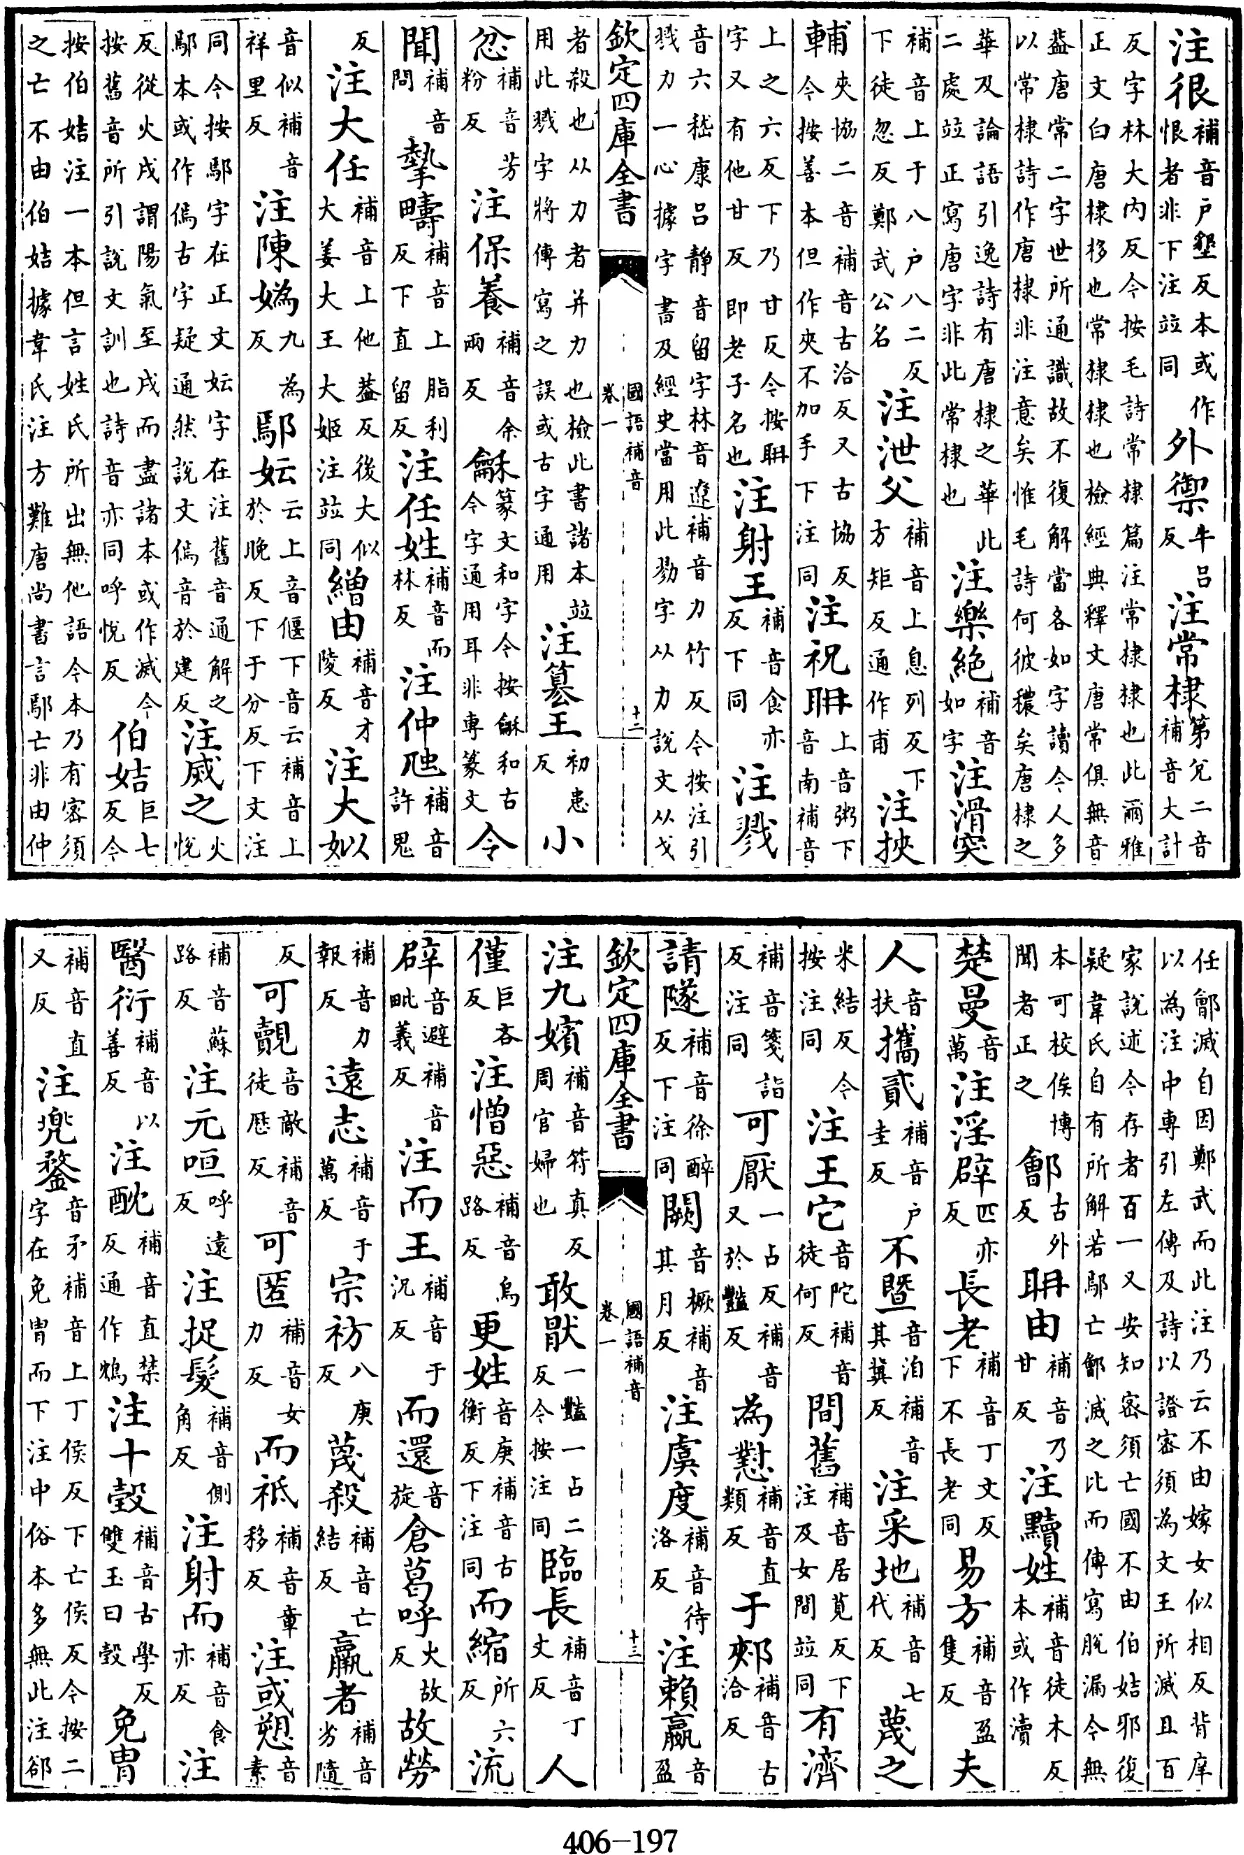 注很補音户墾反本或作恨者非下注竝同外禦牛吕反注常棣第兌二音補音大計
反字林大内反今按毛詩常棣篇注常棣棣也此爾雅正文白唐棣栘也常棣棣也檢經典釋文唐常俱無音
葢唐常二字世所通識故不復解當各如字讀今人多以常棣詩作唐棣非注意矣惟毛詩何彼穠矣唐棣之
華及論語引逸詩有唐棣之華此二處竝正寫唐字非此常棣也注樂絶補音如字注滑突
補音上于八户八二反下徒忽反鄭武公名注泄父補音上息列反下方矩反通作甫注挾
輔夾協二音補音古洽反又古協反今按善本但作夾不加手下注同注祝聃上音粥下音南補音
上之六反下乃甘反今按聃字又有他甘反即老子名也注射王補音食亦反下同注戮
音六嵇康吕靜音留字林音遼補音力竹反今按注引戮力一心據字書及經史當用此勠字从力說文从戈
欽定四庫全書 國語補音 卷一 十二
者殺也从力者并力也檢此書諸本竝用此戮字將傳寫之誤或古字通用注簒王初患反小
忿補音芳粉反注保養補音余兩反龢篆文和字今按龢和古今字通用耳非專篆文令
聞補音問摯疇補音上脂利反下直留反注任姓補音而林反注仲虺補音許鬼
反注大任補音上他葢反後大似大姜大王大姬注竝同繒由補音才陵反注大姒
音似補音祥里反注陳媯九為反鄢妘云上音偃下音云補音上於晚反下于分反下文注
同今按鄢字在正文妘字在注舊音通解之鄢本或作傿古字疑通然說文傿音於建反注烕之火悅
反從火戌謂陽氣至戌而盡諸本或作滅今按舊音所引說文訓也詩音亦同呼悅反伯姞巨七反今
按伯姞注一本但言姓氏所出無他語今本乃有密須之亡不由伯姞據韋氏注方難唐尚書言鄢亡非由仲
任鄶滅自因鄭武而此注乃云不由嫁女似相反背庠以為注中專引左傳及詩以證密須為文王所滅且百
家說述今存者百一又安知密須亡國不由伯姞邪復疑韋氏自有所解若鄢亡鄶滅之比而傳寫脫漏今無
本可校俟博聞者正之鄶古外反聃由補音乃甘反注黷姓補音徒木反本或作瀆
楚曼音萬注淫辟匹亦反長老補音丁丈反下不長老同易方補音盈隻反夫
人音扶攜貳補音户圭反不暨音洎補音其冀反注采地補音七代反蔑之
米結反今按注同注王它音陀補音徒何反間舊補音居莧反下注及女間竝同有濟
補音箋詣反注同可厭一占反補音又於豔反為懟補音直類反于郟補音古洽反
請隧補音徐醉反下注同闕音橛補音其月反注虞度補音待洛反注賴嬴音盈
欽定四庫全書 國語補音 卷一 十三
注九嬪補音符真反周官婦也敢猒一豔一占二反今按注同臨長補音丁丈反人
僅巨吝反注憎惡補音烏路反更姓音庚補音古衡反下注同而縮所六反流
辟音避補音毗義反注而王補音于況反而還音旋倉葛呼火故反故勞
補音力報反遠志補音于萬反宗祊八庚反蔑殺補音亡結反羸者補音劣隨
反可覿音敵補音徒歷反可匿補音女力反而祗補音章移反注或愬音素
補音蘇路反注元咺呼遠反注捉髮補音側角反注射而補音食亦反注
醫衍補音以善反注酖補音直禁反通作鴆注十瑴補音古學反雙玉曰瑴免胄
補音直又反注兜鍪音矛補音上丁侯反下亡侯反今按二字在免胄而下注中俗本多無此注郤
406-197